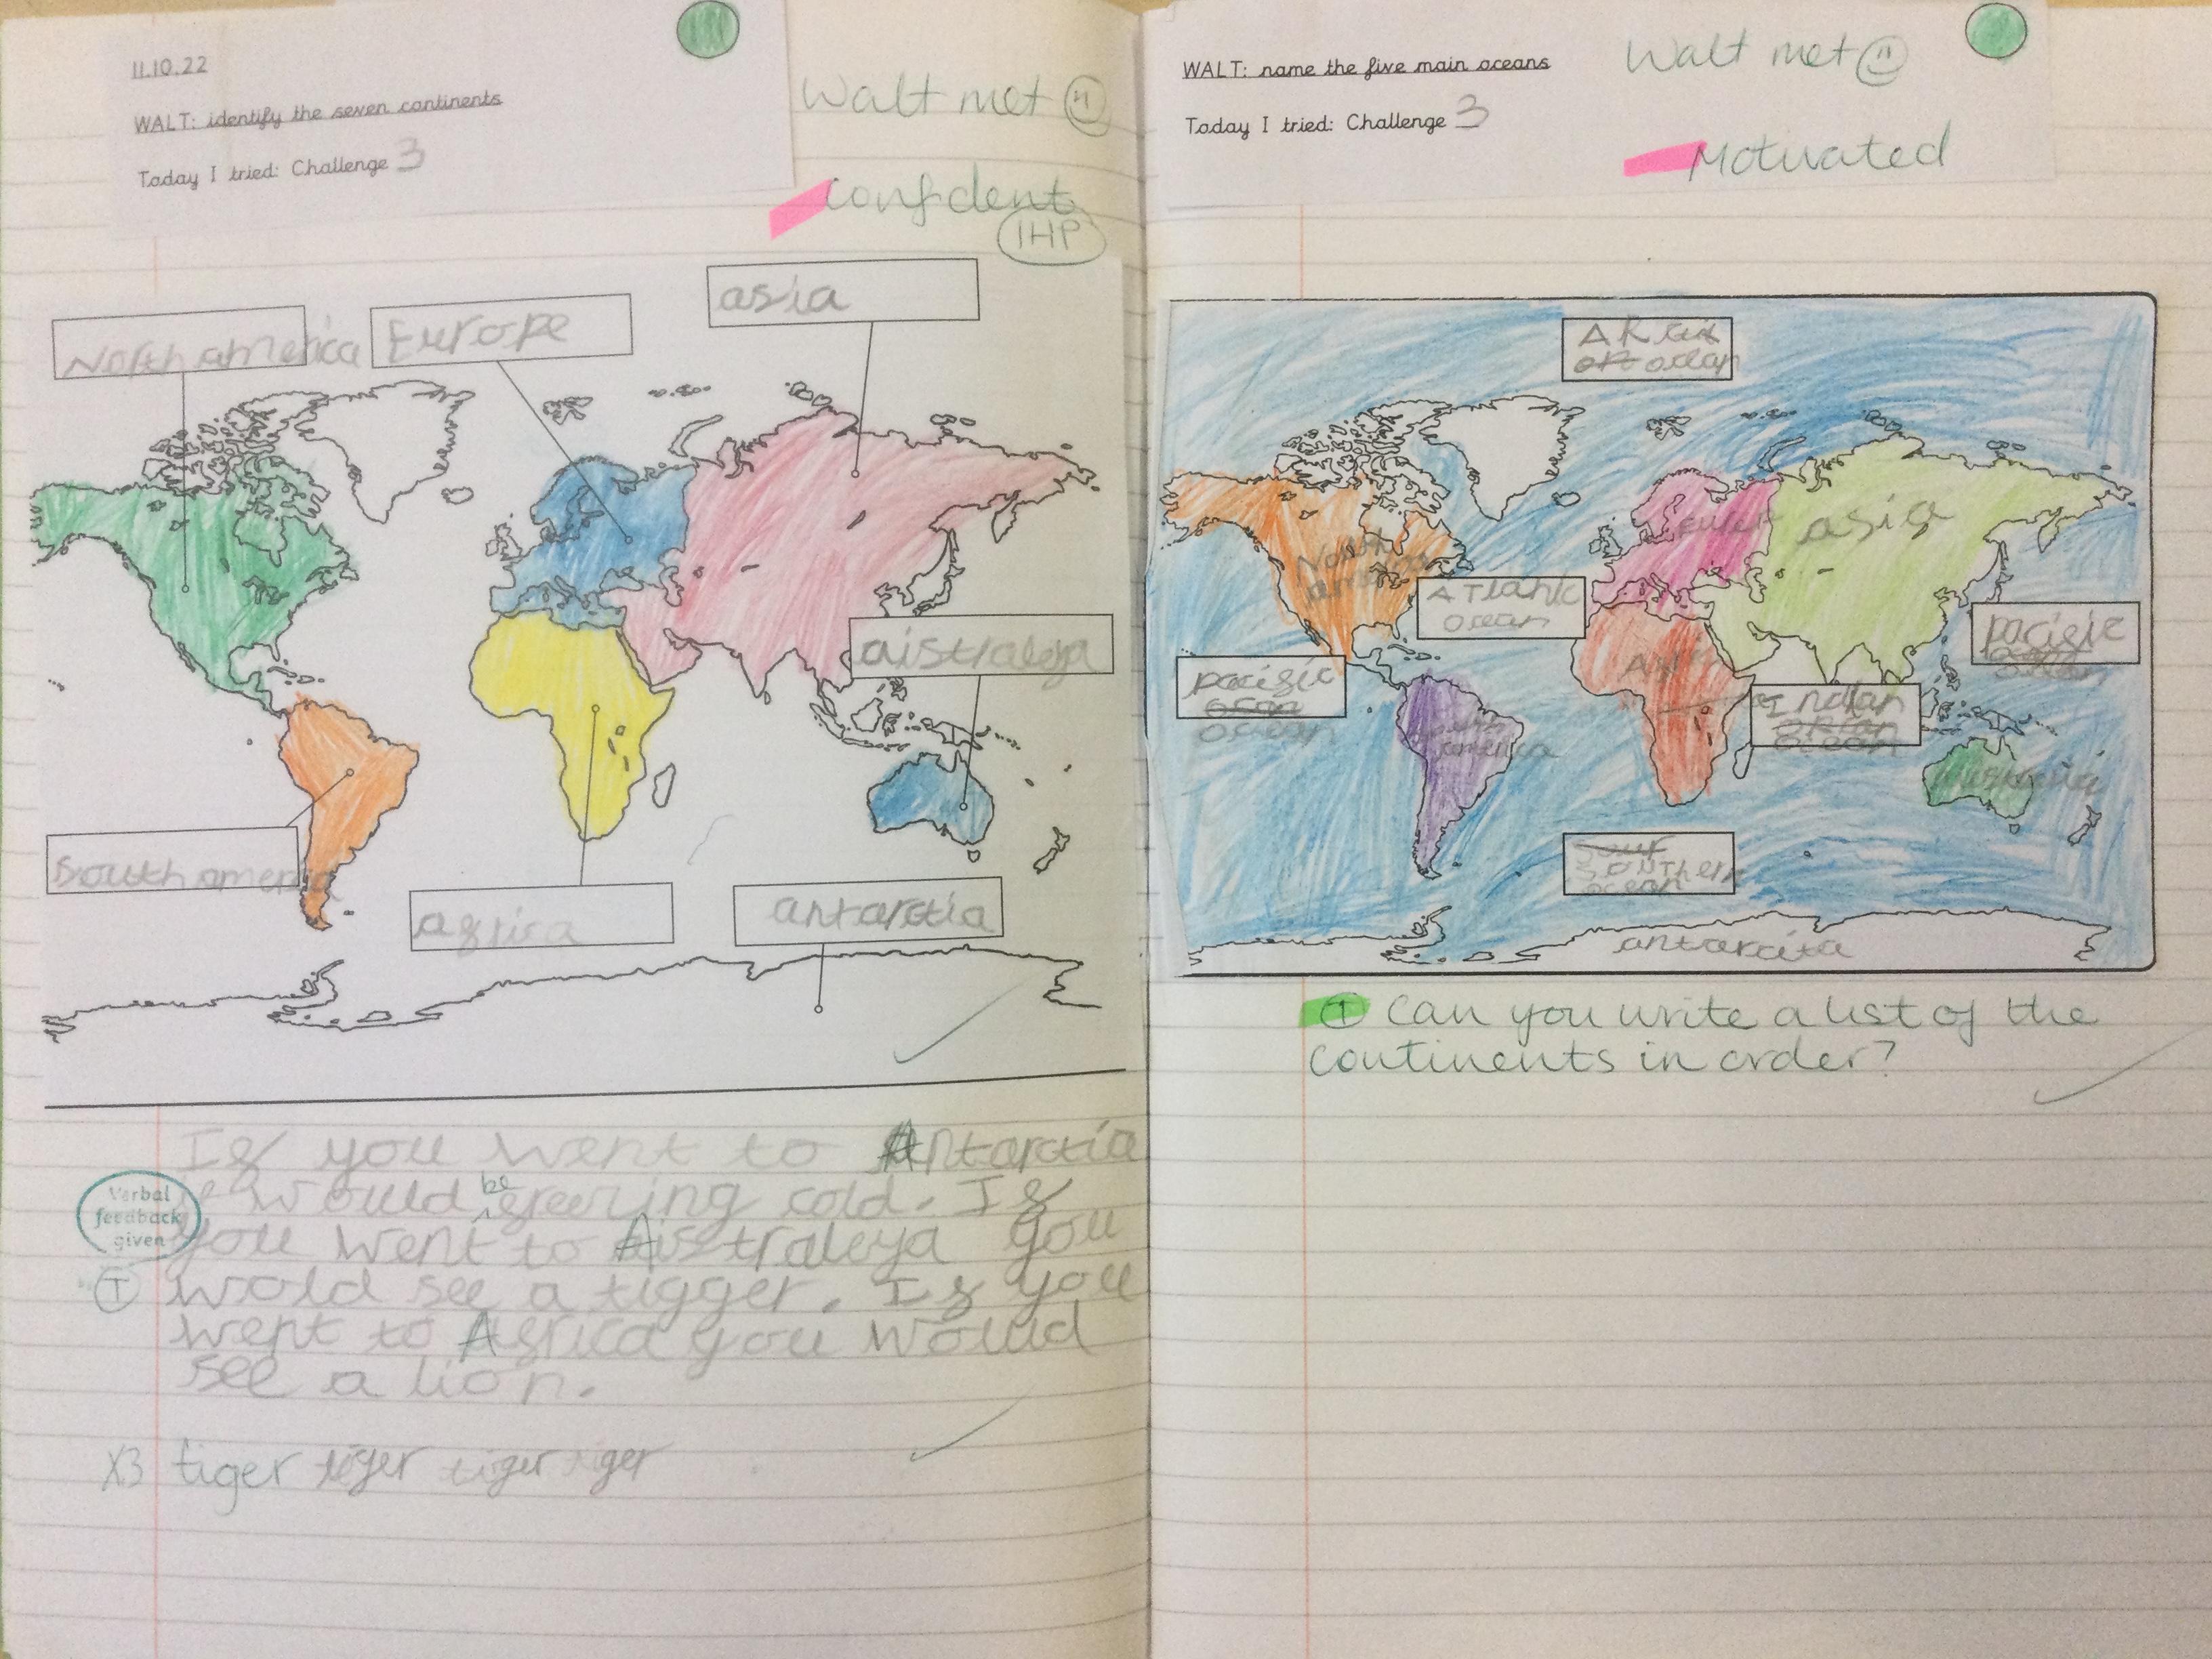 11.10.22
WALT: identify the seven continents
Today I tried: Challenge 3
Walt met
Confident
1HP
North america
Europe
asia
aistraleya
South america
africa
antarctia
If you went to Antarctia
would be freezing cold. If
you went to Aistraleya you
wold see a tigger. If you
went to Africa you would
see a lion.
Verbal
feedback
given
T
X3 tiger tiger tiger tiger
WALT: name the five main oceans
Today I tried: Challenge 3
Walt met
Motivated
ocean
North
america
asia
ATlantic
ocean
pacific
ocean
pacific
ocean
Indian
ocean
south
america
SouThern
ocean
antarcita
T Can you write a list of the
continents in order?